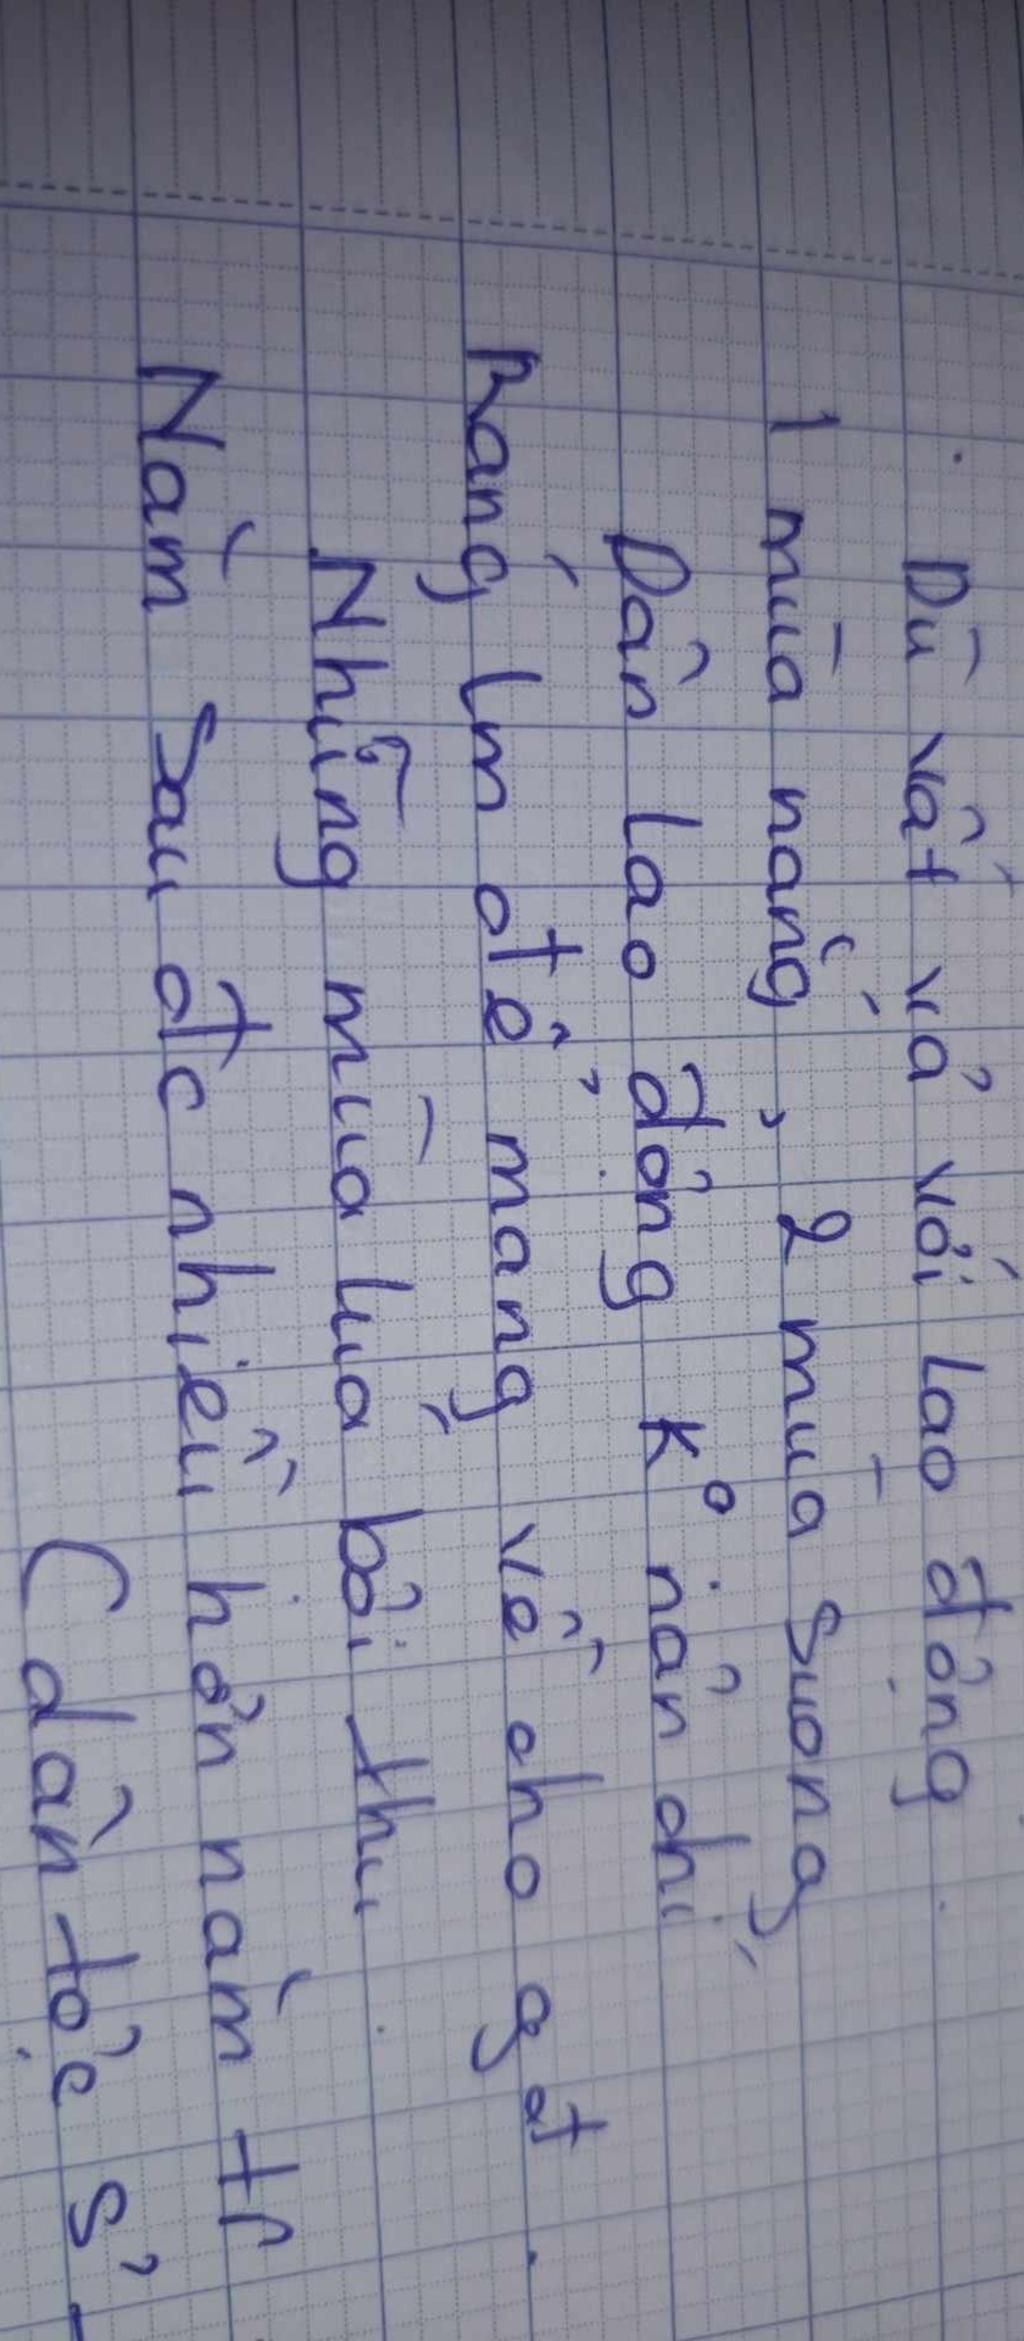 Dù vất vả với lao động
1 mùa nắng, 2 mùa sương
Dân lao động k° nản chí
Ráng lm để mang về cho gạt
Những mùa lúa bội thu
Năm sau đc nhiều hơn năm tr
(dân tộc